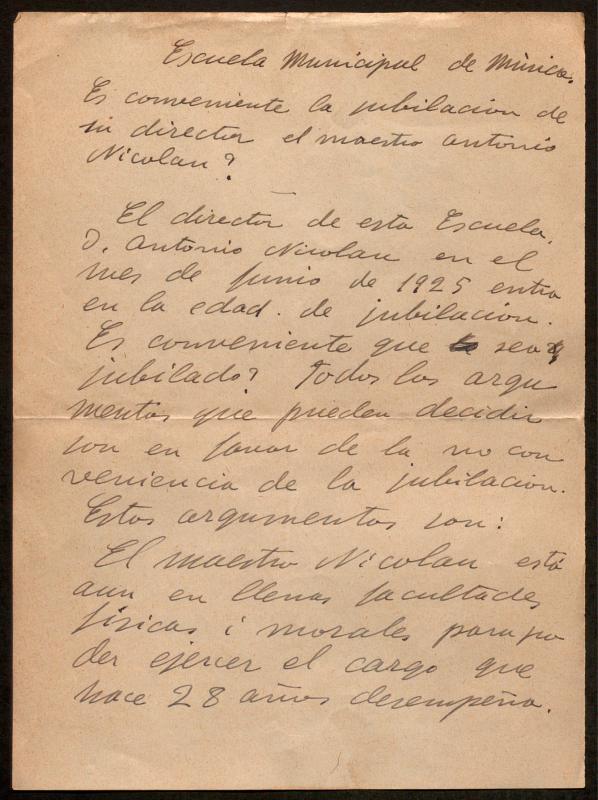 Escuela Municipal de Música.
Es conveniente la jubilación de
su director el maestro Antonio
Nicolau?
El director de esta Escuela,
D. Antonio Nicolau en el
mes de Junio de 1925 entra
en la edad de jubilación.
Es conveniente que sea
jubilado? Todos los argu
mentos que pueden decidir
son en favor de la no con
veniencia de la jubilación.
Estos argumentos son:
El maestro Nicolau está
aun en llenas facultades
físicas i morales para po
der ejercer el cargo que
hace 28 años desempeña.